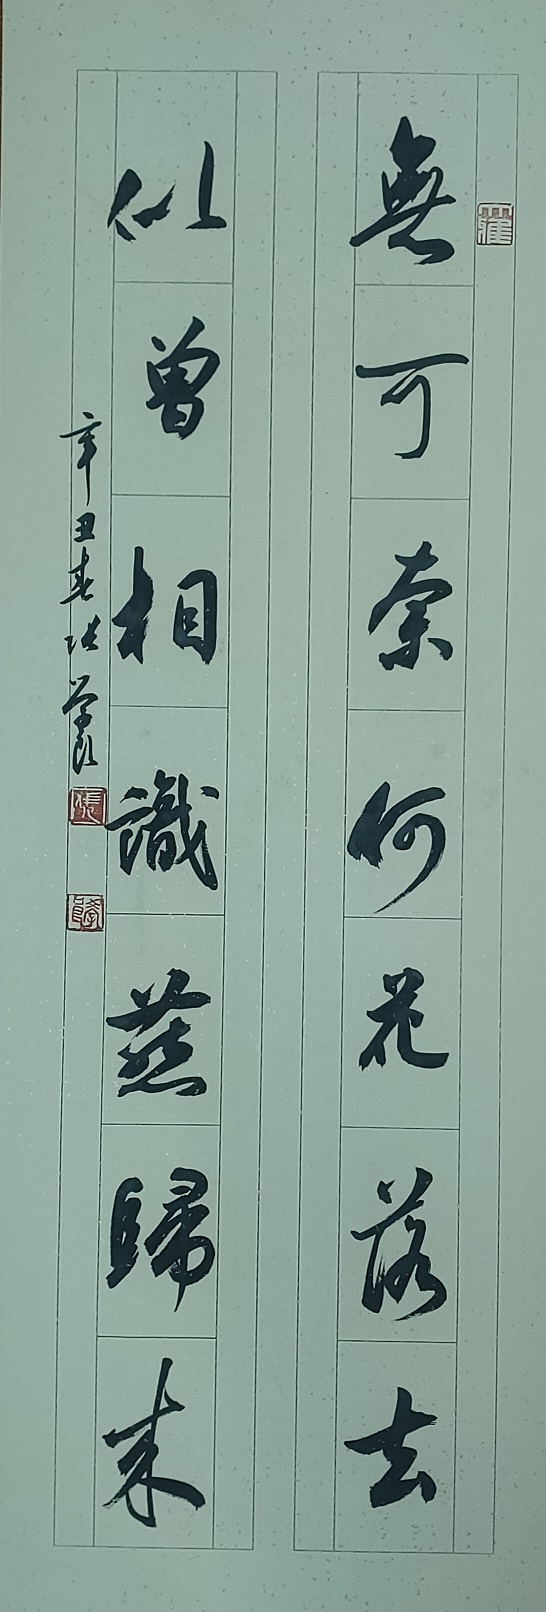 無可奈何花落去
似曾相識燕歸來
辛丑春 张学良
張